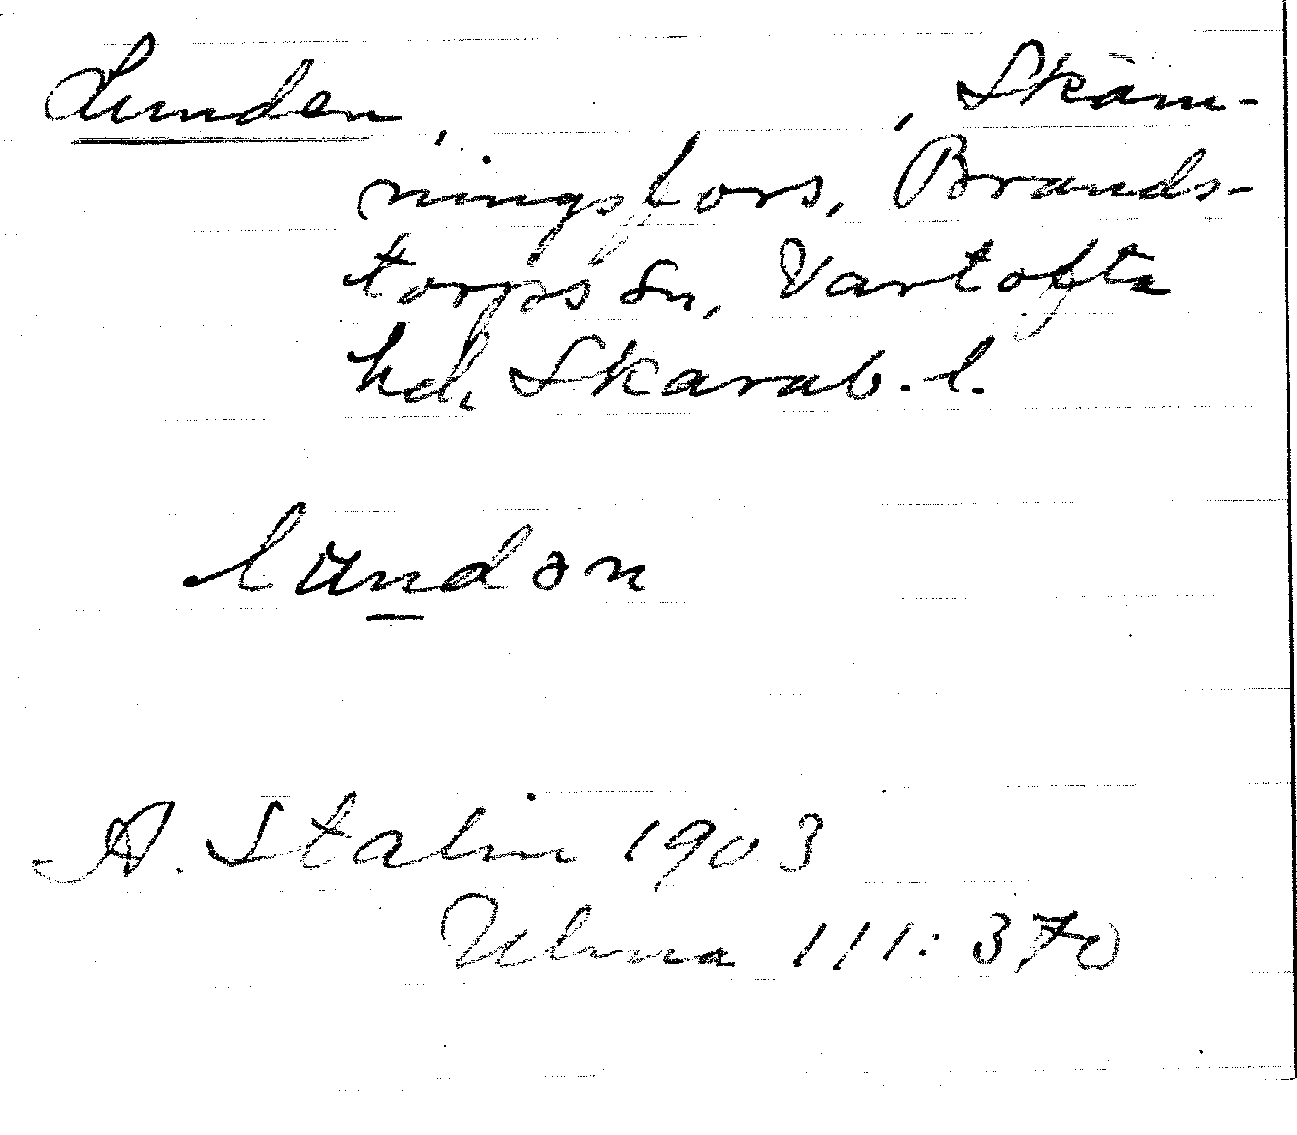 Lunden, , Skäm-
ningsfors, Brands-
torps sn, Vartofta
hd, Skarab. l.
lundən
A. Stalin 1903
Ulma 111:370